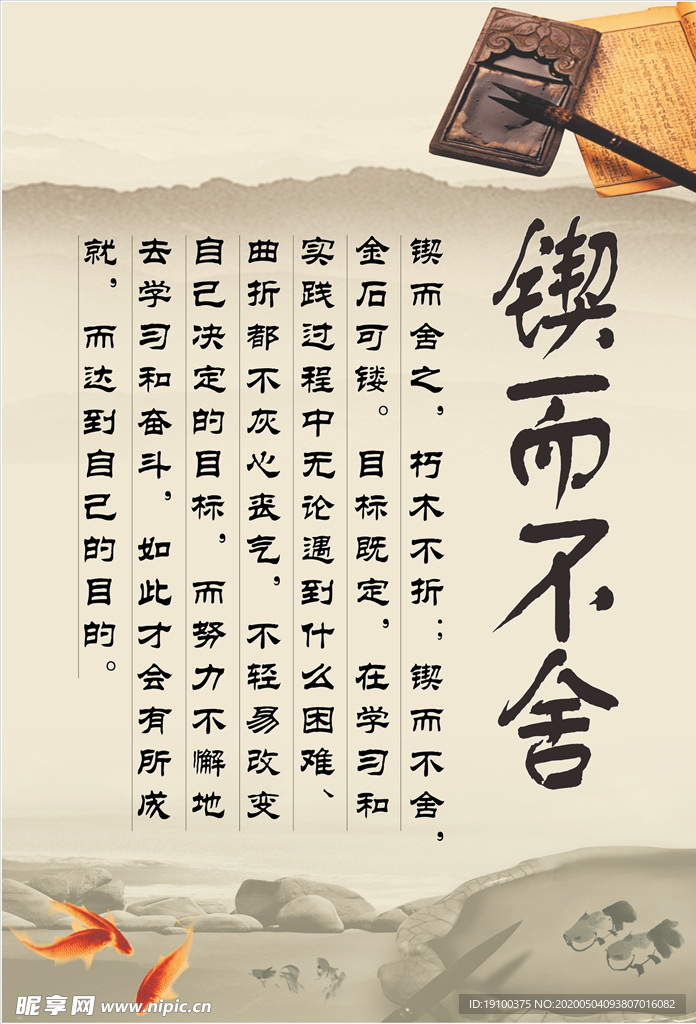 锲而不舍
锲而舍之，朽木不折；锲而不舍，
金石可镂。目标既定，在学习和
实践过程中无论遇到什么困难、
曲折都不灰心丧气，不轻易改变
自己决定的目标，而努力不懈地
去学习和奋斗，如此才会有所成
就，而达到自己的目的。
昵享网 www.nipic.cn
ID:19100375 NO:20200504093807016082